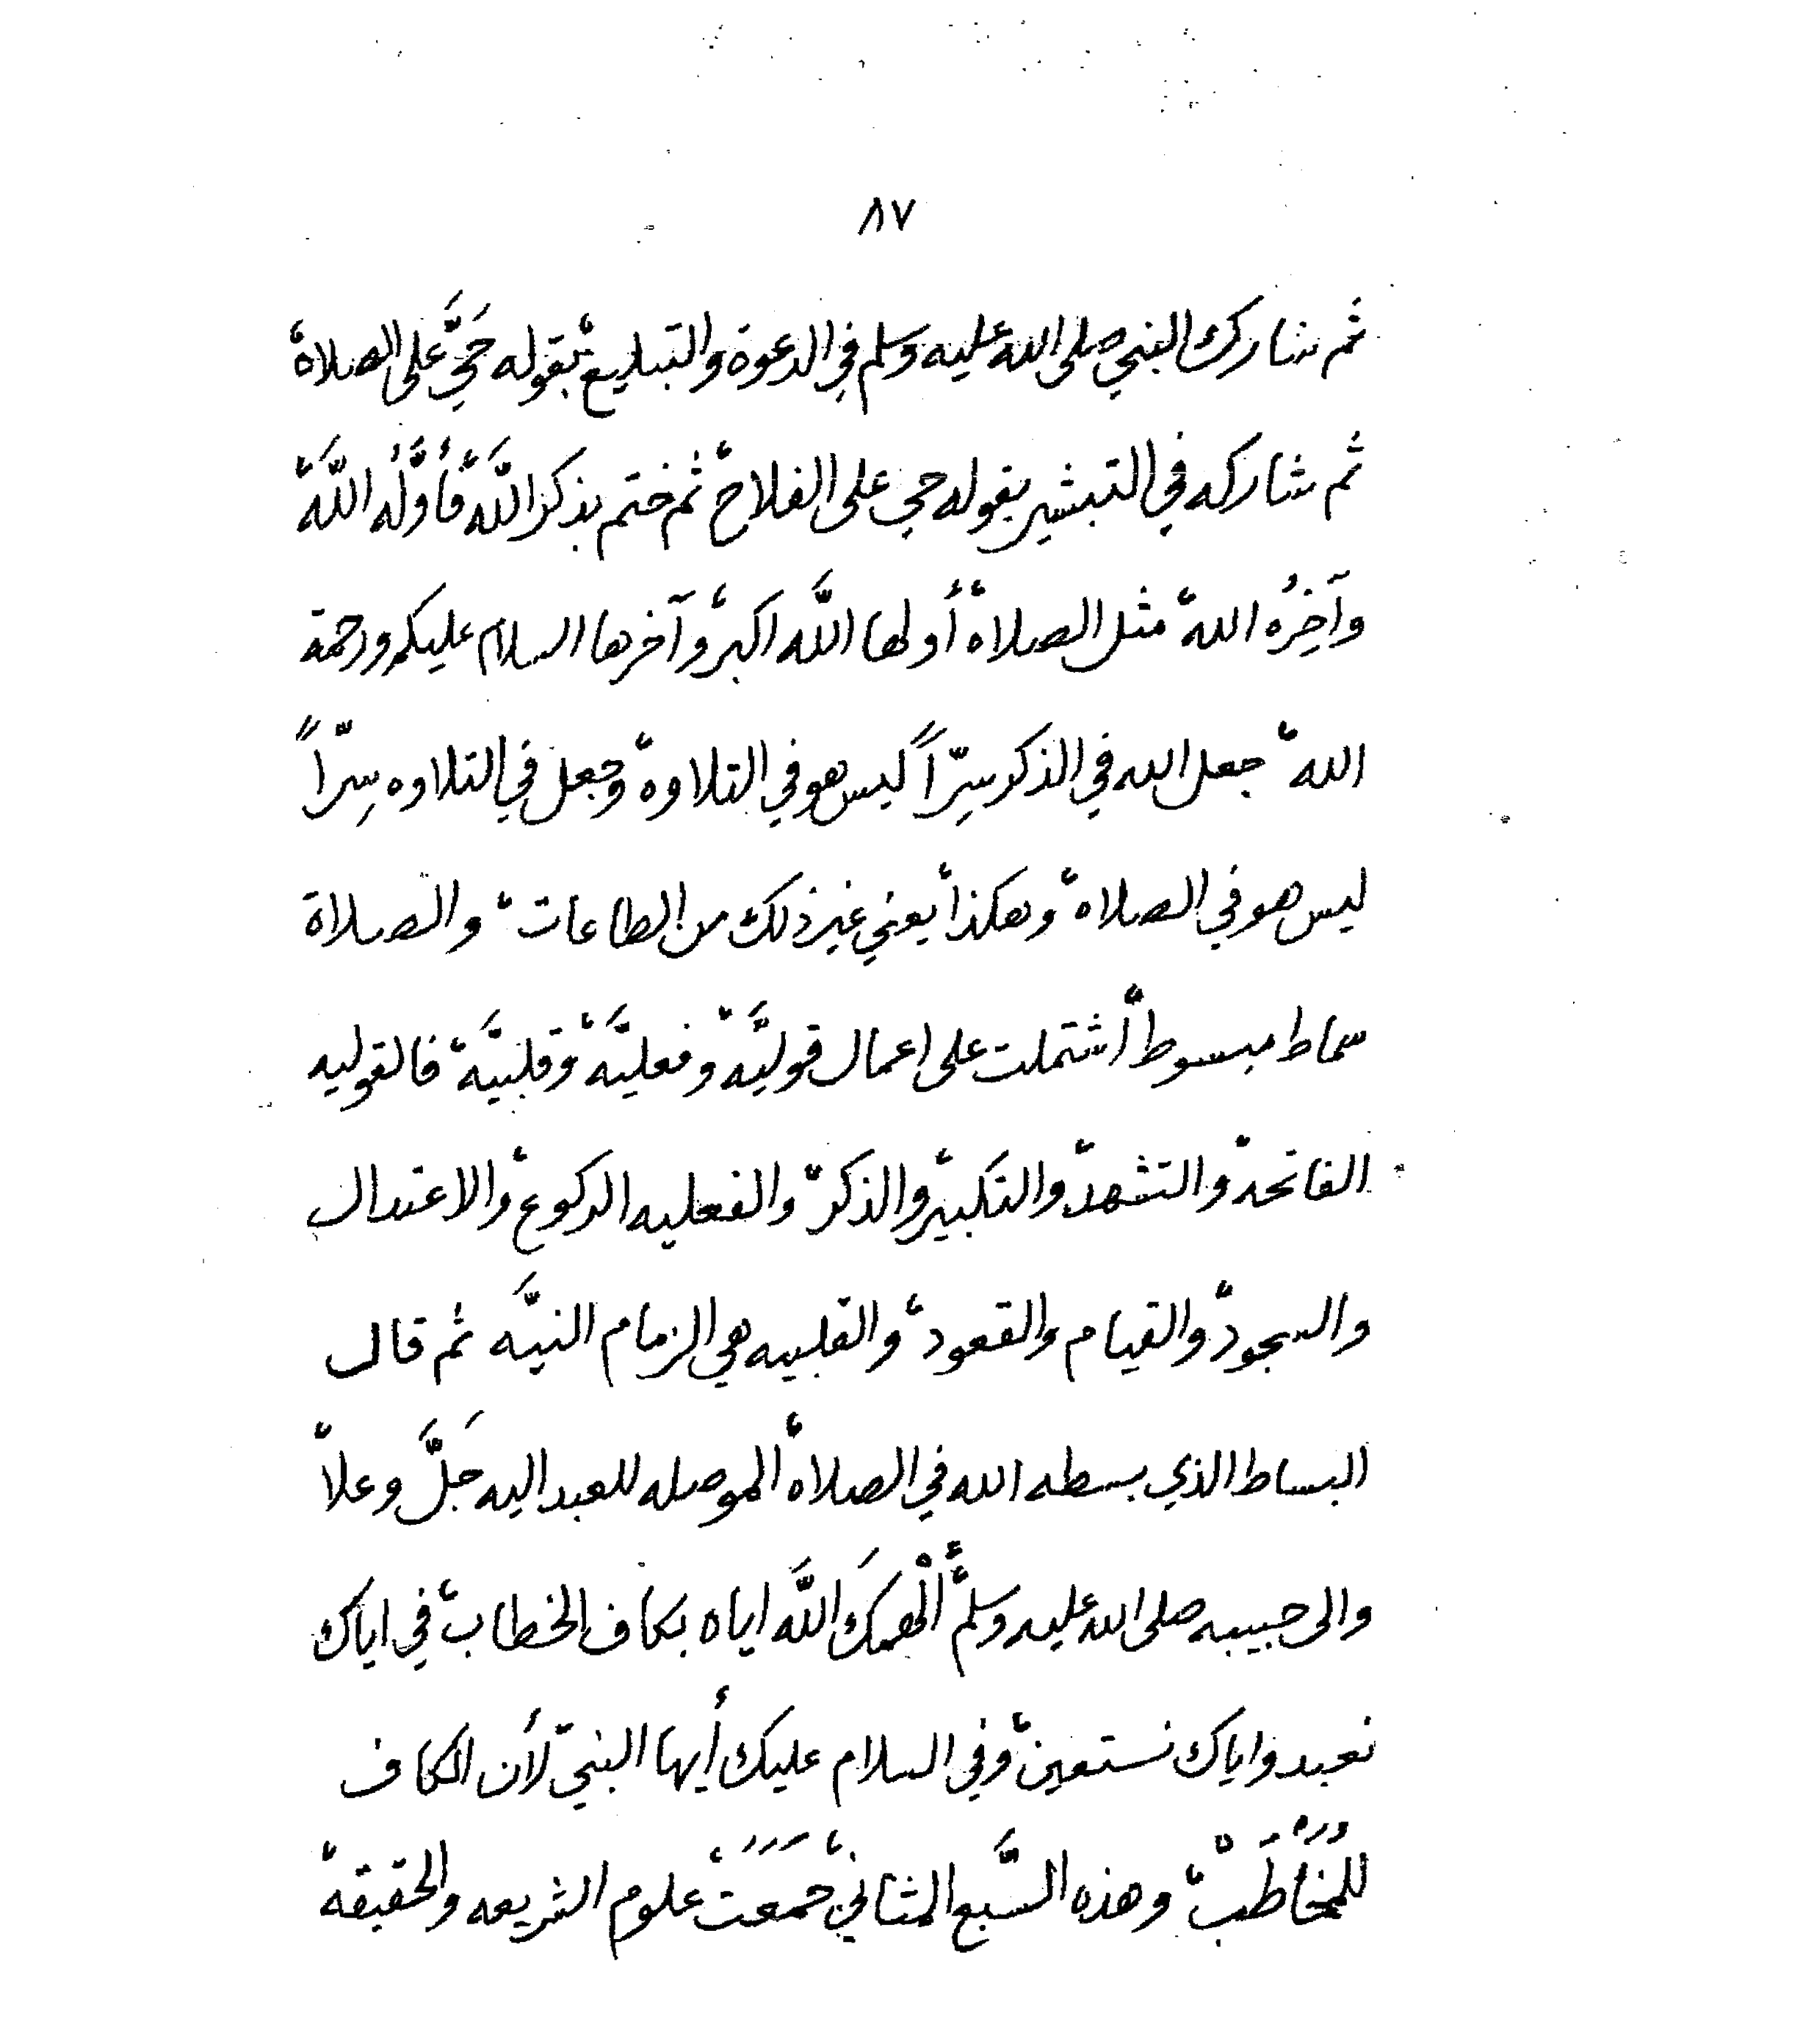 ٨٧
ثم شارك النبي صلى الله عليه وسلم في الدعوة والتبليغ، بقوله حَيَّ على الصلاة،
ثم شاركه في التبشير بقوله حي على الفلاح، ثم ختم بذكر اللَّه، فأوَّلُه اللَّه،
وآخِرُه الله، مثل الصلاة، أولها اللَّه اكبر، وآخرها السلام عليكم ورحمة
الله، جعل الله في الذكر سِرّاً ليس هو في التلاوه، وجعل في التلاوه سِرّاً
ليس هو في الصلاه، وهكذا، يعني غير ذلك من الطاعات، والصلاة
سماط مبسوط، اشتملت على اعمال قوليَّه، وفعليَّه، وقلبيَّه، فالقوليه
الفاتحه، والتشهد، والتكبير، والذكر، والفعليه الركوع، والاعتدال
والسجود، والقيام والقعود، والقلبيه هي الزمام النيَّه ثم قال
البساط الذي بسطه الله في الصلاة، الموصله للعبد اليه جَلَّ وعلا،
والى حبيبه صلى الله عليه وسلم، ألْهمكَ اللَّه اياه بكاف الخطاب، في اياك
نعبد واياك نستعين، وفي السلام عليك أيها النبيّ لأن الكاف
للمُخَاطَبْ، وهذه السَّبع المثاني، جَمَعَتْ علوم الشريعه والحقيقه،